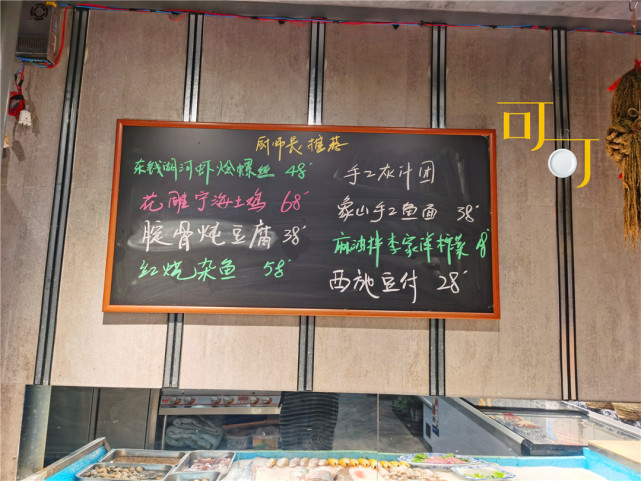 厨师长推荐
东钱湖河虾烩螺丝 48
花雕宁海土鸡 68
腚骨炖豆腐 38
红烧杂鱼 58
手工灰汁团
象山手工鱼面 38
麻油拌李家洋榨菜 8
西施豆付 28
可可